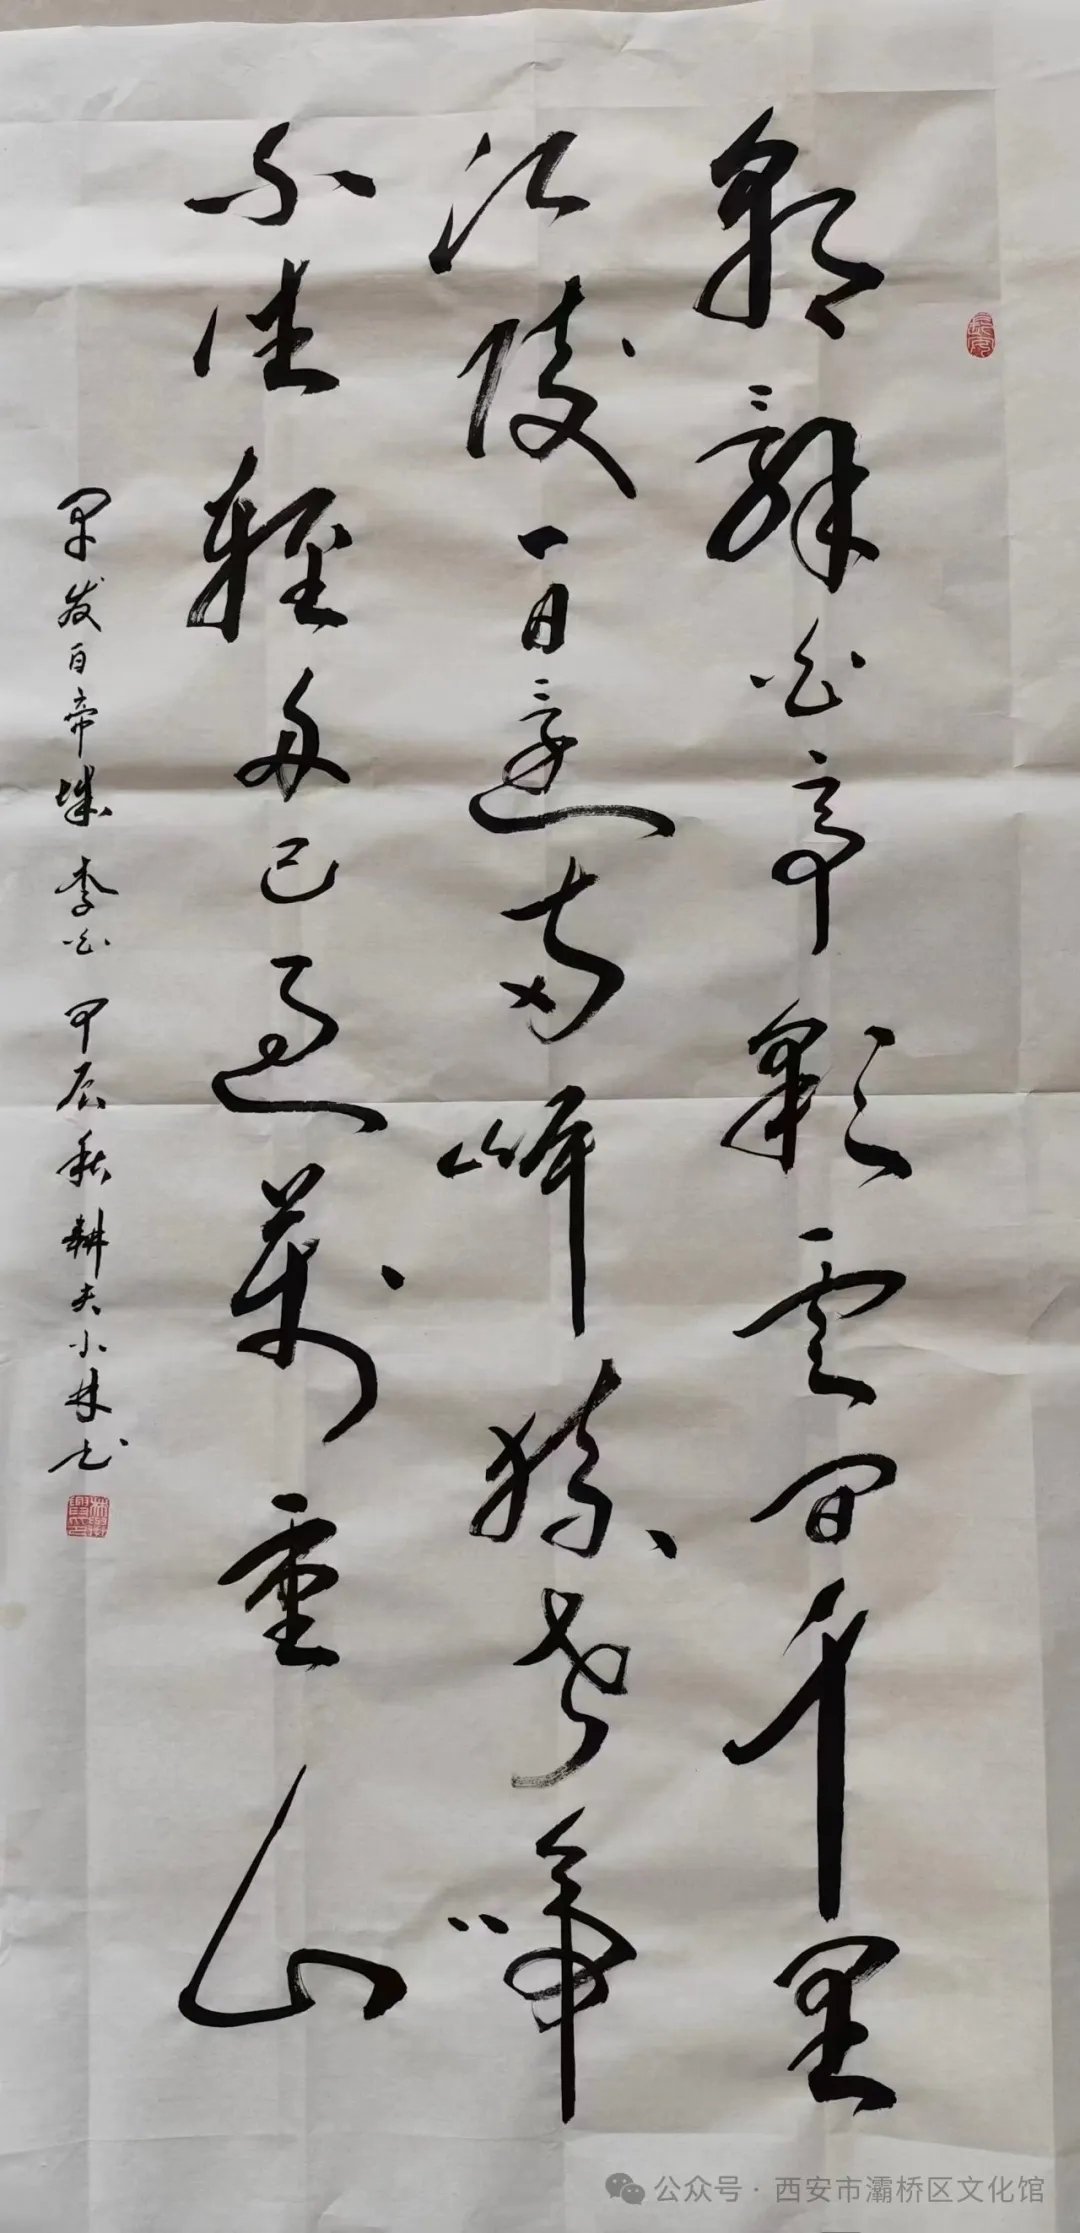 朝辭白帝彩雲間千里
江陵一日還两岸猿声啼
不住輕舟已過萬重山
早发白帝城 李白 甲辰秋 耕夫小林书
長安
公众号 · 西安市灞桥区文化馆